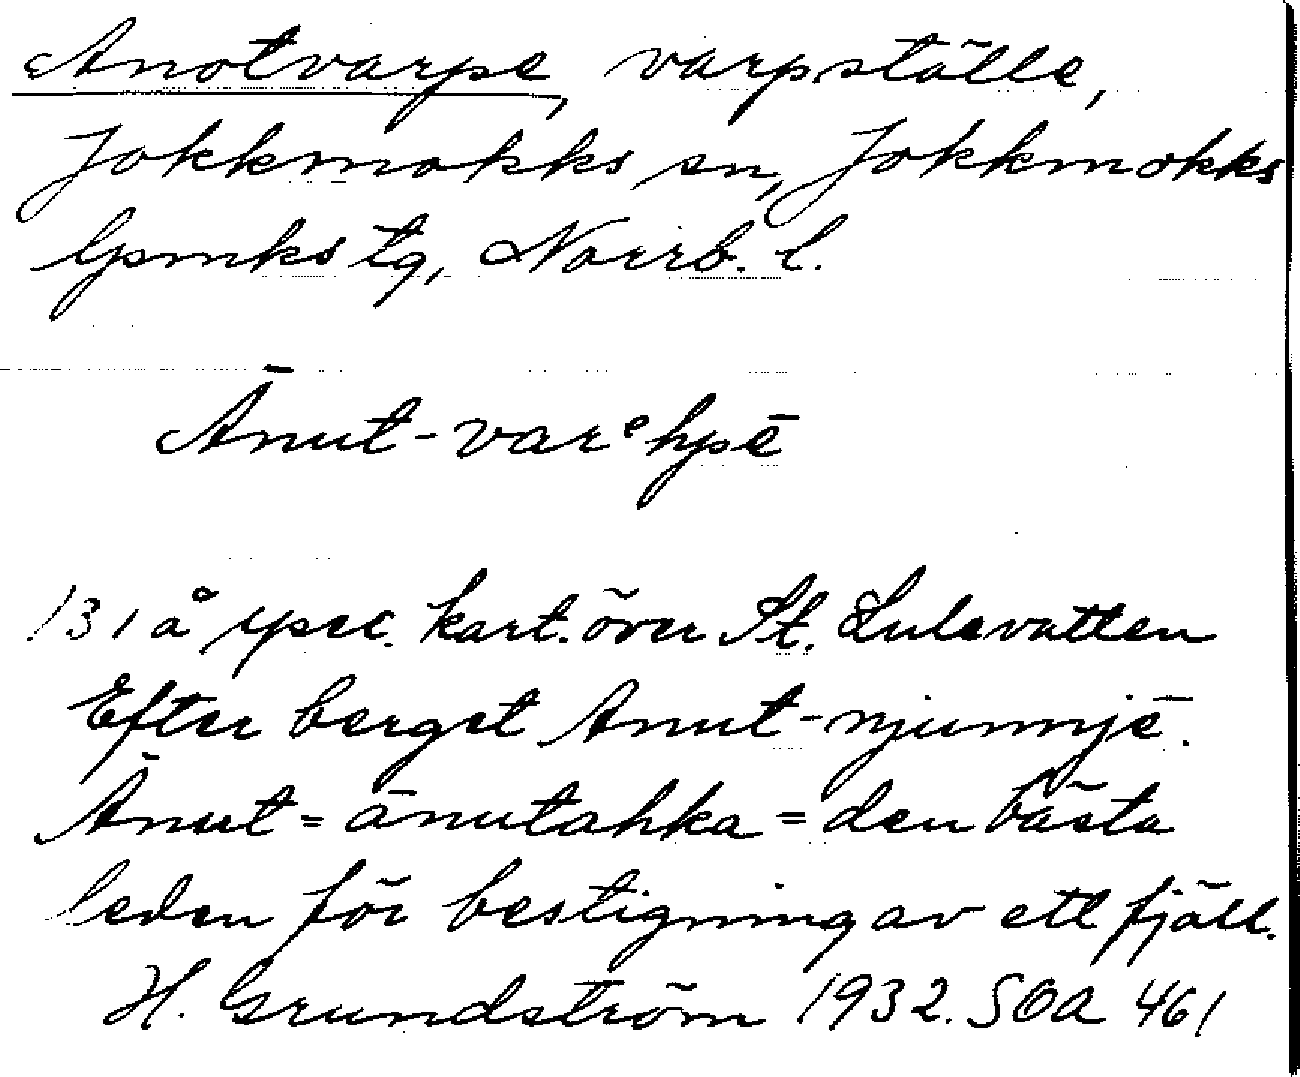 Anotvarpe, varpställe,
Jokkmokks sn, Jokkmokks
lpmks tg, Norrb. l.
Ānut-varᵉhpē
131 å spec. kart. över St. Lulevatten
Efter berget Anut-njunnjē.
Ānut = ānutahka = den bästa
leden för bestigning av ett fjäll.
H. Grundström 1932. SOA 461